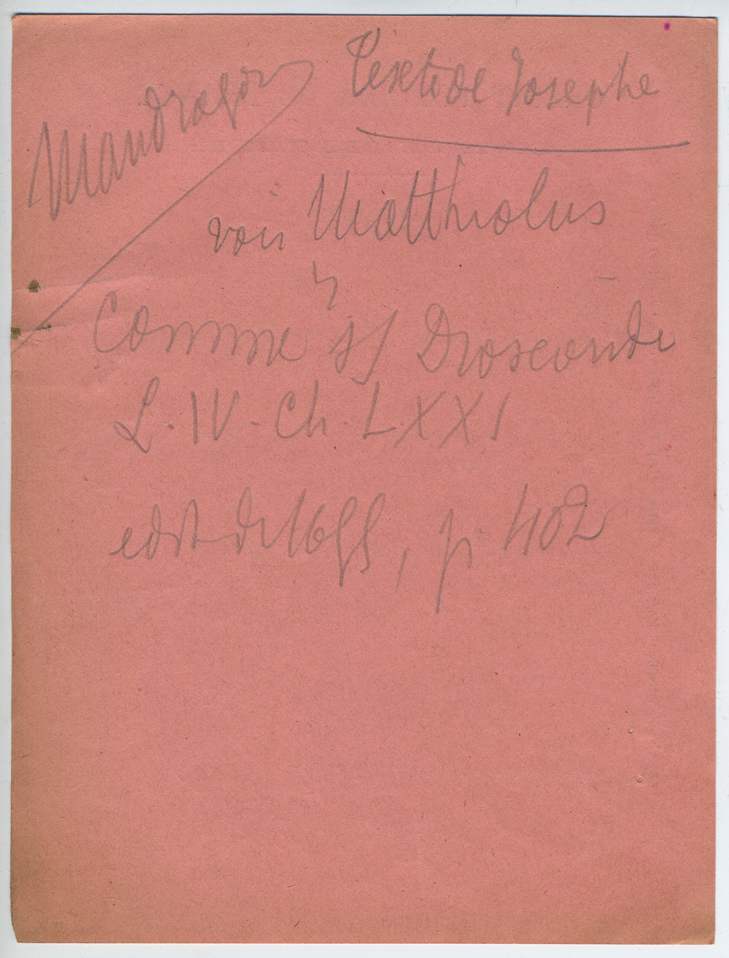 Mandragore
Texte de Josephe
voir Matthiolus
Comme s/ Dioscoride
L. IV - Ch. LXXI
edit de 1655, p. 402